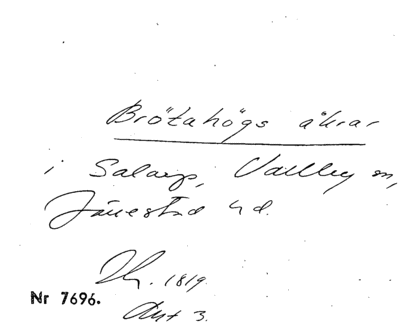 Brötahögs åkrar
i Salarp, Vallby sn,
Järrestad hd.
1819
Nr 7696.
Akt 3.